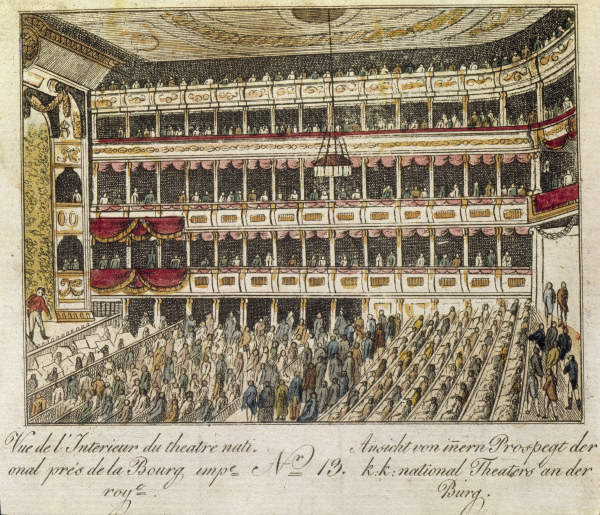 Vue de l'Interieur du theatre nati-
onal prés de la Bourg impe
roye.
Nr 13.
Ansicht von iñern Prospegt der
k.k: national Theaters an der
Burg.